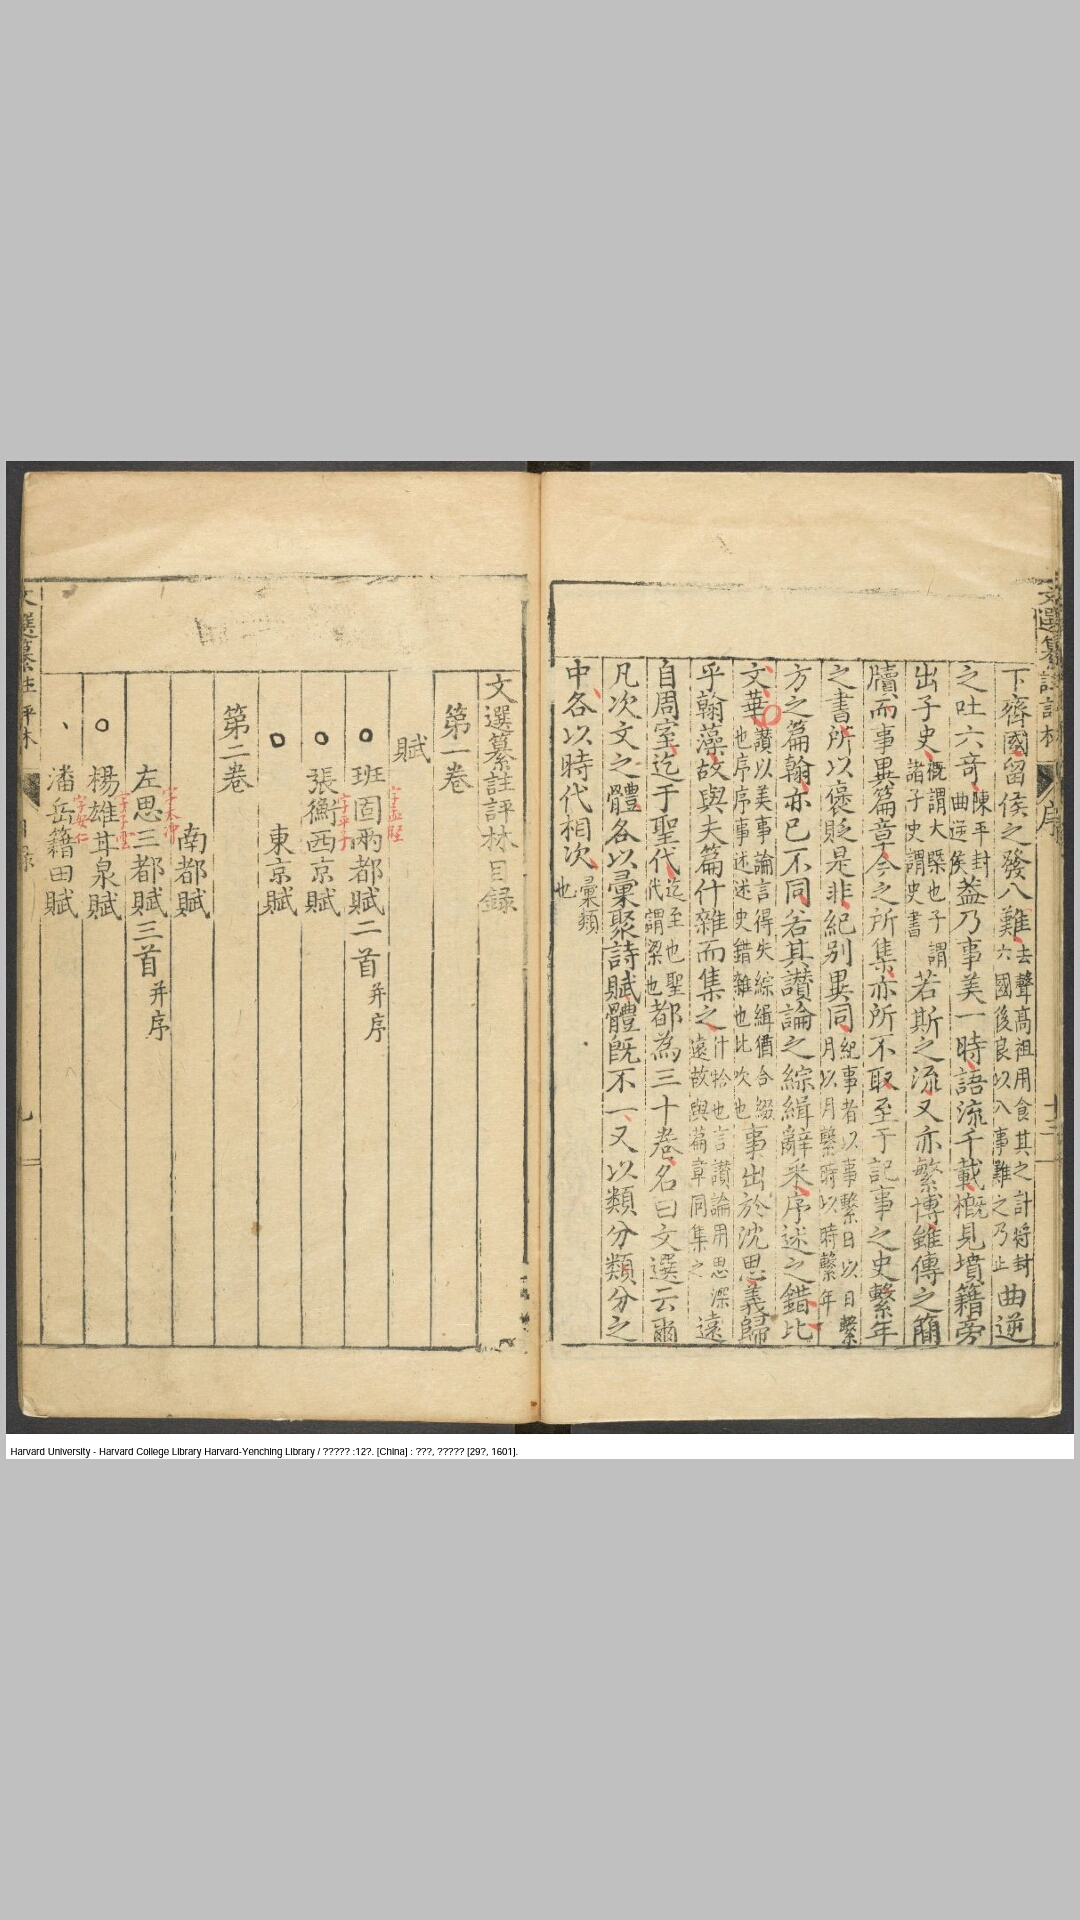 下齊國留侯之發八難去聲高祖用食其之計將封六國後良以八事難之乃止曲逆
之吐六奇陳平封曲逆侯葢乃事美一時語流千載槪見墳籍旁
出子史槪謂大槩也子謂諸子史謂史書若斯之流又亦繁博雖傳之簡
牘而事異篇章今之所集亦所不取至于記事之史繫年
之書所以褒貶是非紀別異同紀事者以事繫日以日繫月以月繫時以時繫年
方之篇翰亦已不同若其讃論之綜緝辭采序述之錯比
文華讃以美事論言得失綜緝猶合綴也序序事述述史錯雜也比次也事出於沈思義歸
乎翰藻故與夫篇什雜而集之什拾也言讃論用思深遠故與篇章同集之遠
自周室迄于聖代迄至也聖代謂梁也都為三十卷名曰文選云爾
凡次文之體各以彙聚詩賦體旣不一又以類分類分之
中各以時代相次彙類也
序
十二
文選纂註評林目録
第一卷
賦
班固兩都賦二首并序
字孟堅
張衡西京賦
字平子
東京賦
第二卷
南都賦
左思三都賦三首并序
字太冲
楊雄甘泉賦
字子雲
潘岳籍田賦
字安仁
文選纂註評林
目錄
Harvard University - Harvard College Library Harvard-Yenching Library / ????? :12?. [China] : ???, ????? [29?, 1601].